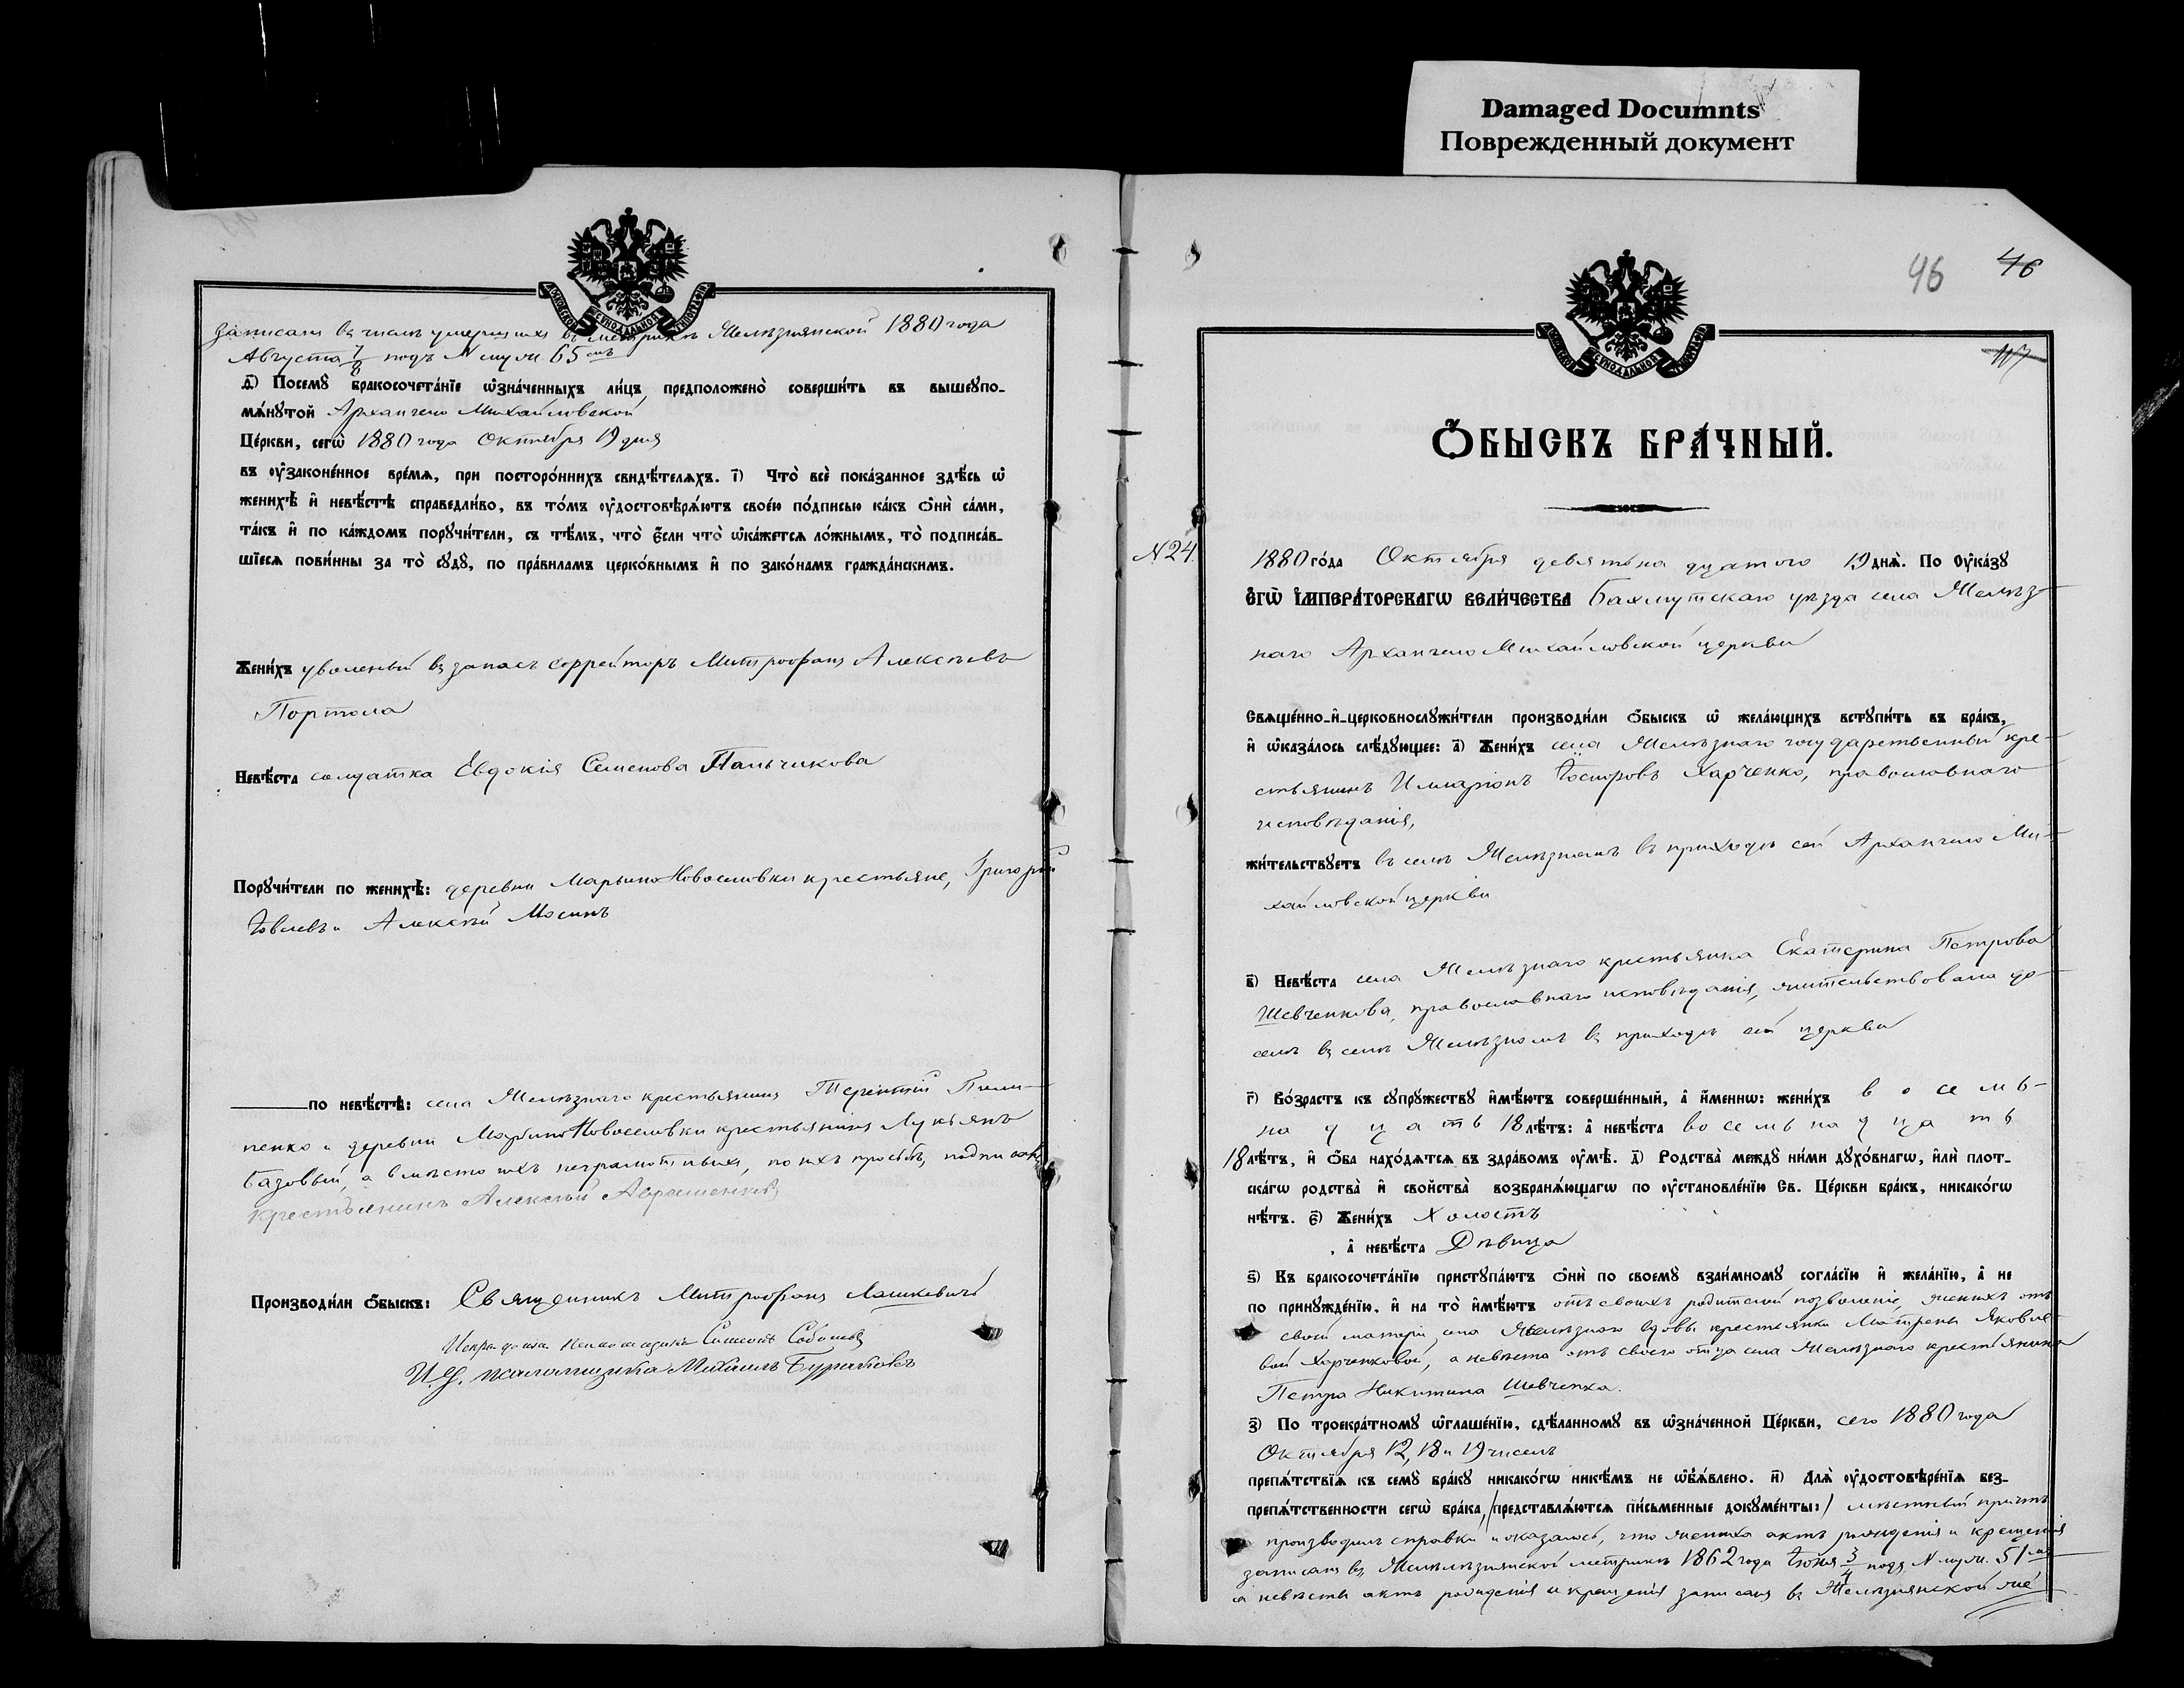 Damaged Documnts
Поврежденный документ
записанъ въ числѣ умершихъ въ метрикѣ Желѣзнянской 1880 года
Августа 7/8 подъ № муж. 65мъ
д҃) Посемꙋ бракосочета́нїе ѡ҆зна́ченныхъ ли́цъ предположено̀ соверши́ть въ вышеꙋпо-
мѧ́нꙋтой Архангело Михайловской
Це́ркви, сегѡ̀ 1880 года Октября 19 дня
въ ᲂу҆законе́нное вре́мѧ, при посторо́ннихъ свидѣ́телѧхъ. і҃) Что̀ всѐ пока́занное здѣ́сь ѡ҆
женихѣ̀ и҆ невѣ́стѣ справедли́во, въ то́мъ ᲂу҆достовѣрѧ́ютъ свое́ю по́дписью ка́къ ѻ҆нѝ са́ми,
та́къ и҆ по ка́ждомъ порꙋчи́тели, съ тѣ́мъ, что̀ є҆́сли что̀ ѡ҆ка́жетсѧ ло́жнымъ, то̀ подписа́в-
шїесѧ пови́нны за то̀ сꙋдꙋ̀, по пра́виламъ церко́внымъ и҆ по зако́намъ гражда́нскимъ.
Жени́хъ уволеный въ запасъ ефрейторъ Митрофанъ Алексѣевъ
Портола
Невѣ́ста солдатка Евдокія Семенова Пальчикова
Порꙋчи́тели по женихѣ̀: деревни Марьино Новоселовки крестьяне, Григорій
Іовлевъ и Алексѣй Мосинъ
по невѣ́стѣ: села Желѣзнаго крестьянинъ Терентій Пили-
пенко и деревни Марьино Новоселовки крестьянинъ Лукьянъ
Базовый, а вмѣсто ихъ неграмотныхъ, по ихъ просьбѣ, подписался
крестьянинъ Алексѣй Авраменковъ
Производи́ли ѻ҆́быскъ: Священникъ Митрофанъ Лашкевичъ
И. д. псаломщика Михаилъ Бураковъ
46 46
117
Ѻ҆́БЫСКЪ БРА́ЧНЫЙ.
№ 24.
1880 го́да Октября девятьнадцатого 19 днѧ̀. По Оу҆ка́зꙋ
Є҆гѡ̀ І҆мпера́торскагѡ Вели́чества Бахмутскаго уѣзда села Желѣз-
наго Архангело Михайловской церкви
Свѧще́нно-и҆-церковнослꙋжи́тели производи́ли ѻ҆́быскъ ѡ҆ жела́ющихъ встꙋпи́ть въ бра́къ,
и҆ ѡ҆каза́лось слѣ́дꙋющее: а҃) Жени́хъ села Желѣзнаго государственный кре-
стьянинъ Иларіонъ Харченко, православнаго
исповѣданія,
жи́тельствꙋетъ въ селѣ Желѣзномъ въ приходѣ сей Архангело Ми-
хайловской церкви
в҃) Невѣ́ста села Желѣзнаго крестьянка Екатерина Петрова
Шевченкова, православнаго исповѣданія, жительствовала до-
селѣ въ селѣ Желѣзномъ въ приходѣ сей церкви
г҃) Во́зрастъ къ сꙋпрꙋ́жествꙋ и҆мѣ́ютъ соверше́нный, а҆ и҆́меннѡ: жени́хъ восемь-
надцать 18 лѣ́тъ: а҆ невѣ́ста восемьнадцать
18 лѣ́тъ, и҆ ѻ҆́ба нахо́дѧтсѧ въ здра́вомъ ᲂу҆мѣ̀. д҃) Родства̀ междꙋ ни́ми дꙋхо́внагѡ, и҆лѝ плот-
ска́гѡ родства̀ и҆ сво́йства̀ возбранѧ́ющагѡ по ᲂу҆становле́нїю Св. Це́ркви бра́къ, никако́гѡ
нѣ́тъ. є҃) Жени́хъ Холостъ
, а҆ невѣ́ста Дѣвица
ѕ҃) Къ бракосочета́нїю пристꙋпа́ютъ ѻ҆нѝ по своемꙋ̀ взаи́мномꙋ согла́сїю и҆ жела́нїю, а҆ не
по принꙋжде́нїю, и҆ на то̀ и҆мѣ́ютъ отъ своихъ родителей позволеніе, женихъ отъ
своей матери села Желѣзнаго вдовы крестьянки Матрены Яковле-
вой Харченковой, а невѣста отъ своего отца села Желѣзнаго крестьянина
Петра Никитина Шевченка.
з҃) По троекра́тномꙋ ѡ҆глаше́нїю, сдѣ́ланномꙋ въ ѡ҆зна́ченной Це́ркви, сего 1880 года
Октября 12, 18 и 19 чиселъ
препѧ́тствїѧ къ семꙋ̀ бра́кꙋ никако́гѡ никѣ́мъ не ѡ҆б̾ѧ́влено. и҃) Длѧ̀ ᲂу҆достовѣре́нїѧ без-
препѧ́тственности сегѡ̀ бра́ка, /представлѧ́ютсѧ пи́сьменные докꙋме́нты:/ мѣстный причтъ
производилъ справки и оказалось, что жениха актъ рожденія и крещенія
записанъ въ Желѣзнянской метрикѣ 1862 года Іюня 3/4 подъ № муж. 51мъ
а невѣсты актъ рожденія и крещенія записанъ въ Желѣзнянской ме